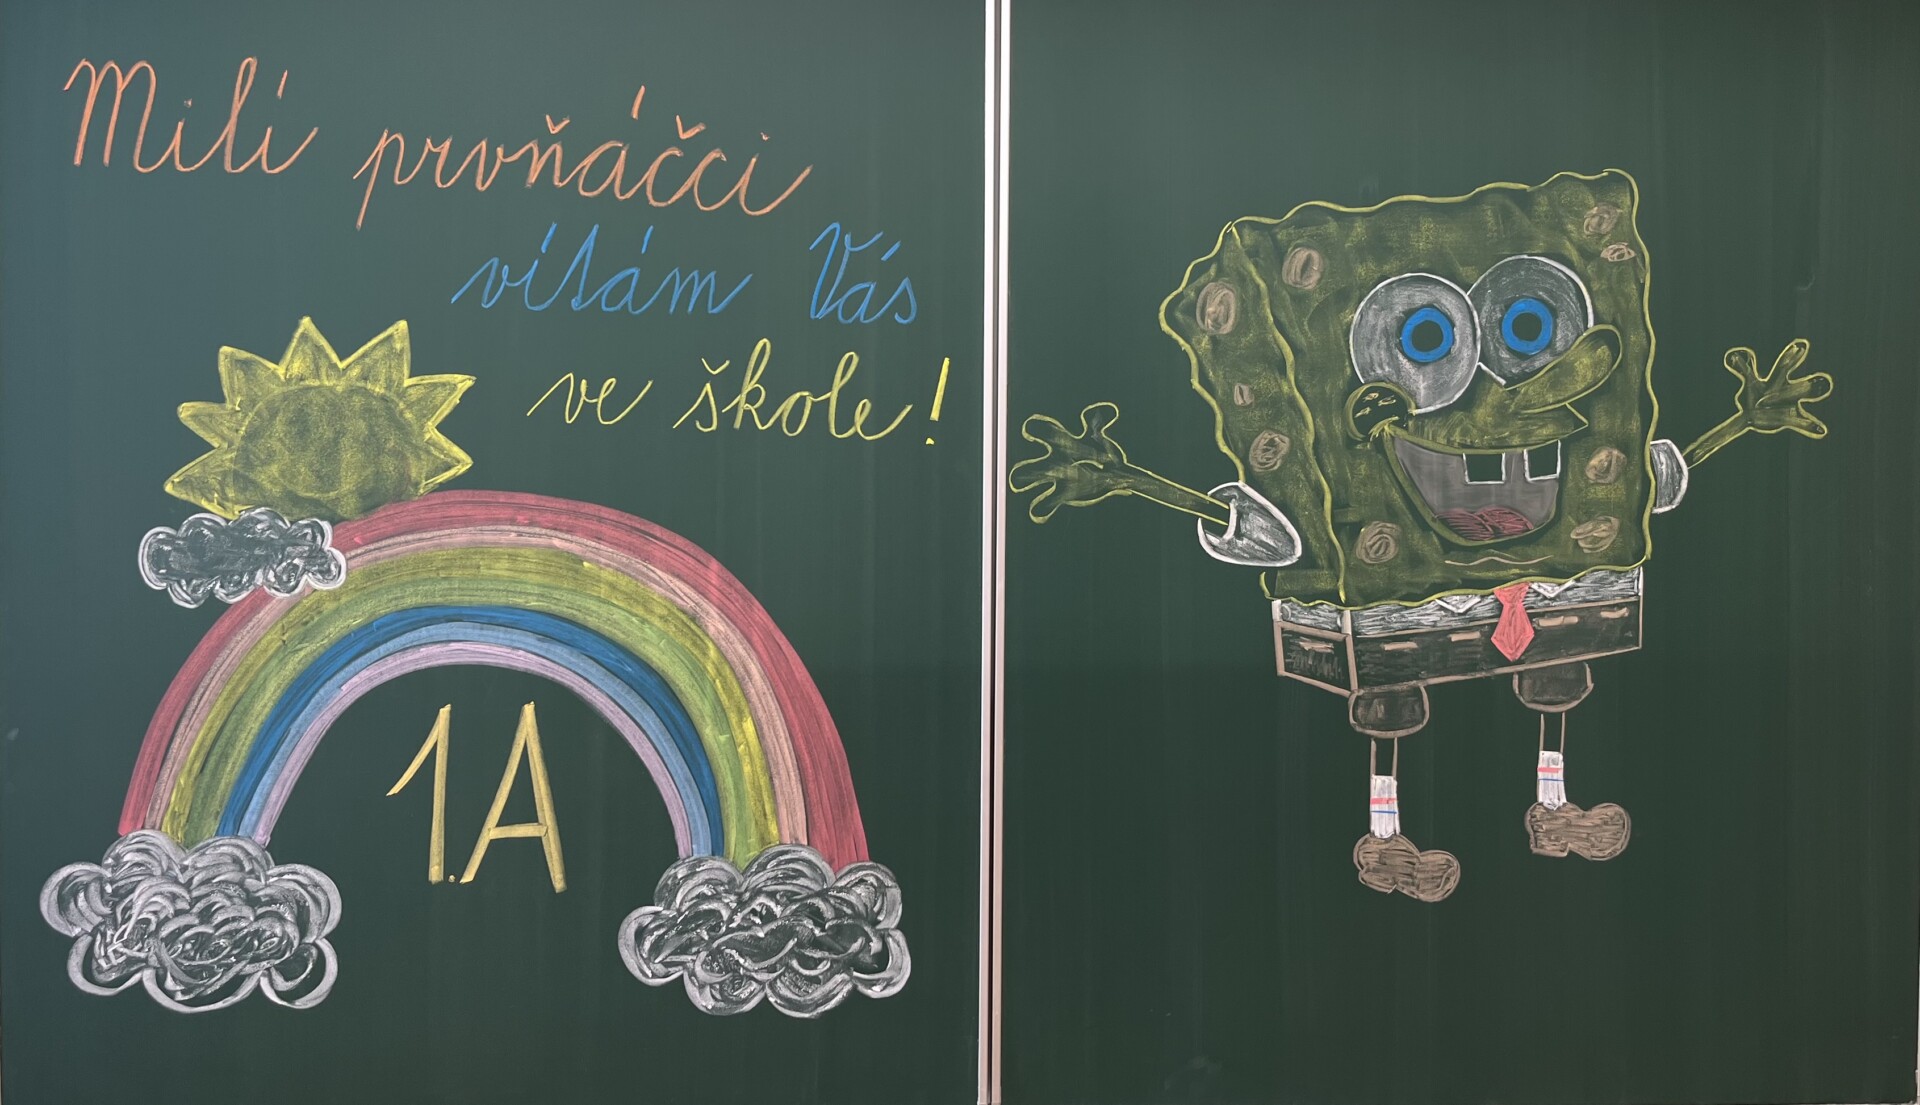 Milí prvňáčci
vítám Vás
ve škole!
1.A